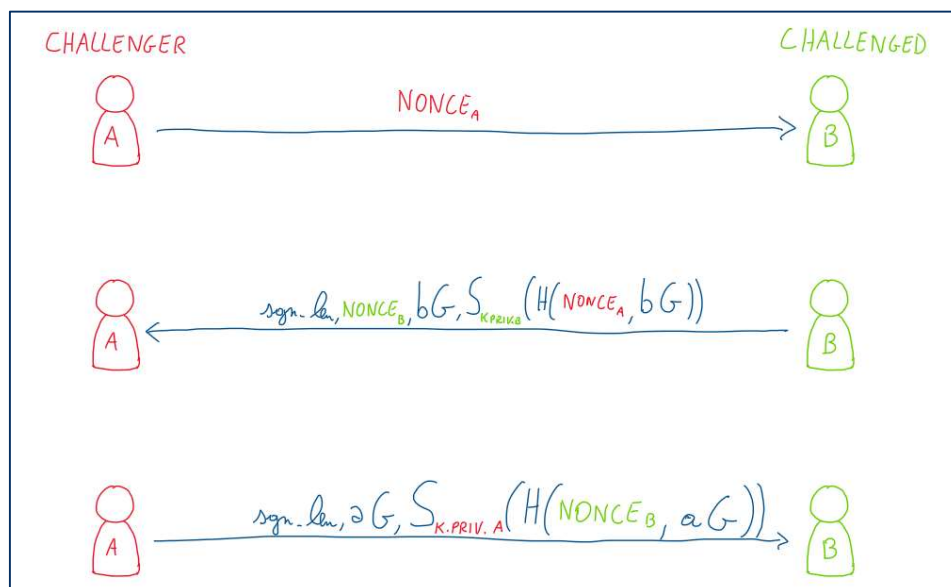 CHALLENGER
CHALLENGED
NONCE_A
A
B
sgn-len, NONCE_B, bG, S_K.PRIV.B(H(NONCE_A, bG))
A
B
sgn-len, aG, S_K.PRIV.A(H(NONCE_B, aG))
A
B